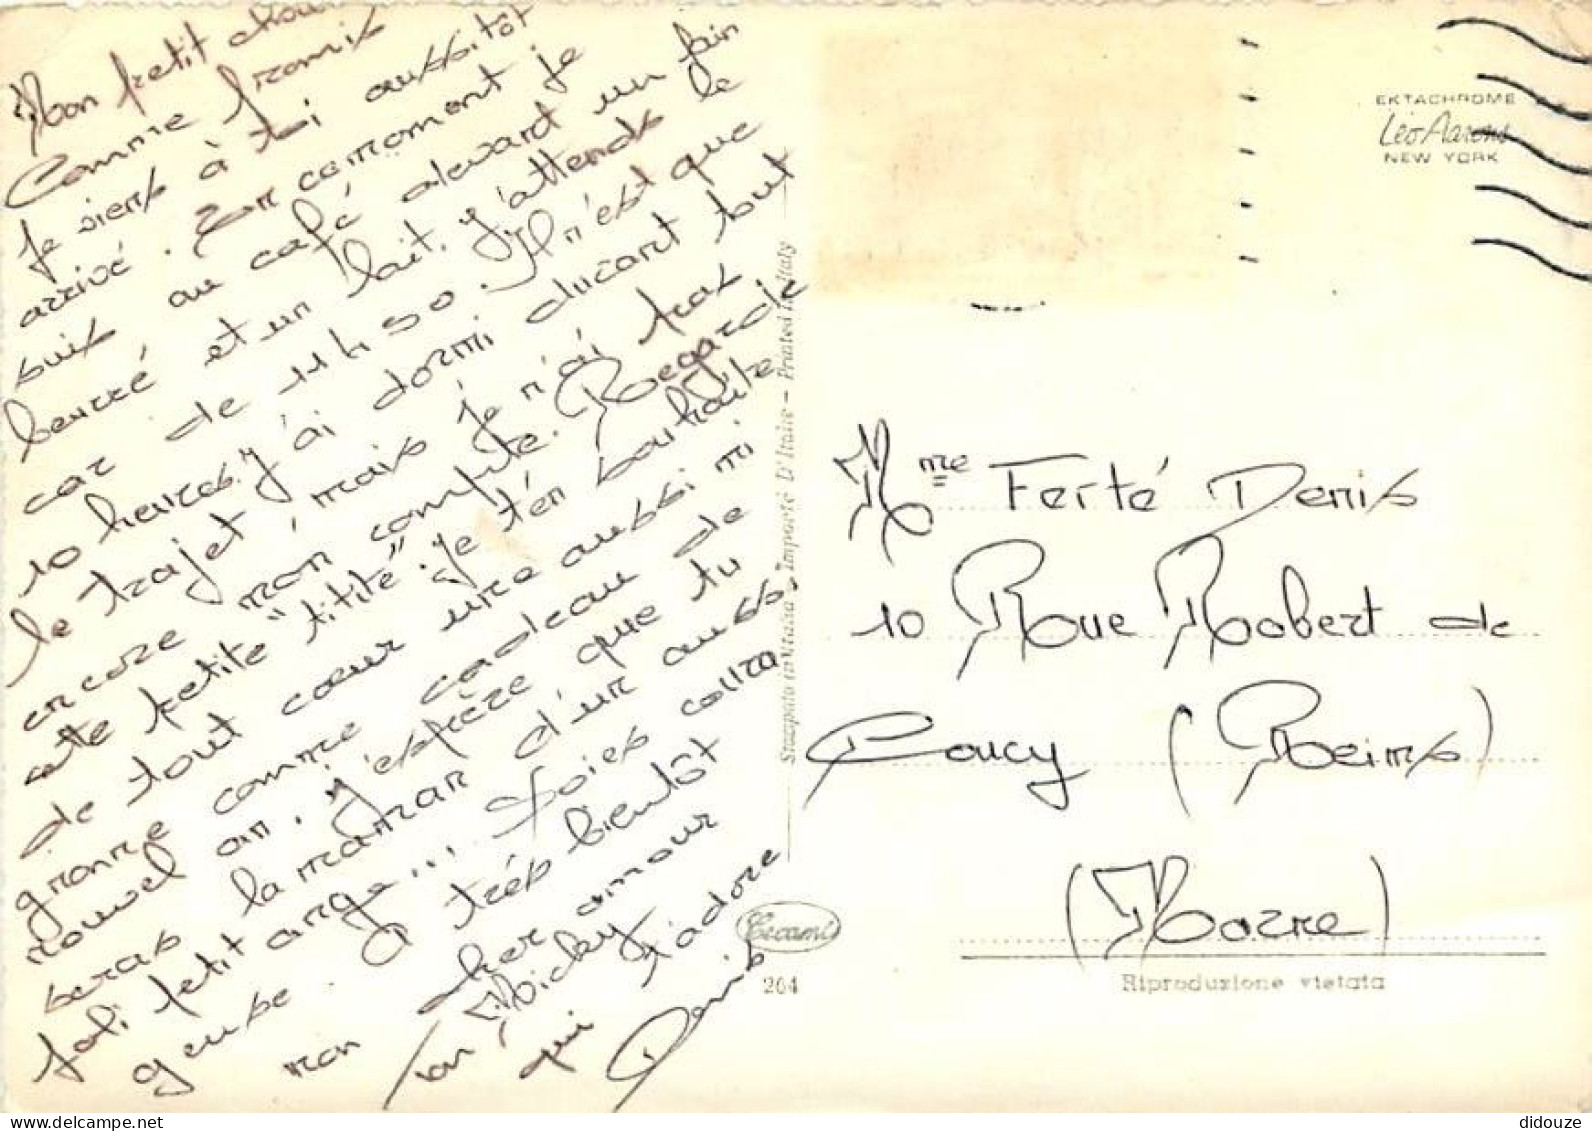 Mon petit chou
Comme promis
je viens à toi aussitôt
arrivé. En ce moment je
suis au café devant un pain
beurré, et un lait, j'attends le
car de 11 h 50. Il n'est que
10 heures. J'ai dormi durant tout
le trajet, mais je n'ai pas
encore mon compte. Regarde
cette petite "titite" je t'en souhaite
de tout cœur une aussi mi
gnonne comme cadeau de
nouvel an. J'espère que tu
seras la maman d'un aussi
joli petit ange... Soies coura
geuse. A très bientôt
mon cher amour
ton Mickey
qui t'adore
Denis
Stampato in Italia - Importé D'Italie - Printed in Italy
Cecami
204
EKTACHROME
Léo Aarons
NEW YORK
Mme Ferté Denis
10 Rue Robert de
Coucy (Reims)
(Marne)
Riproduzione vietata
didouze